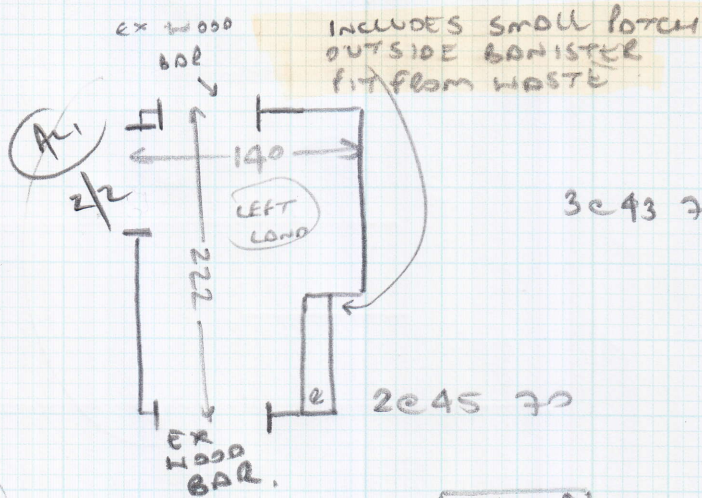 EX WOOD
BAR
INCLUDES SMALL PATCH
OUTSIDE BANISTER
FIT FROM WASTE
140
2/2
LEFT
LAND
3e43 7
222
2e45 70
e
EX
WOOD
BAR.